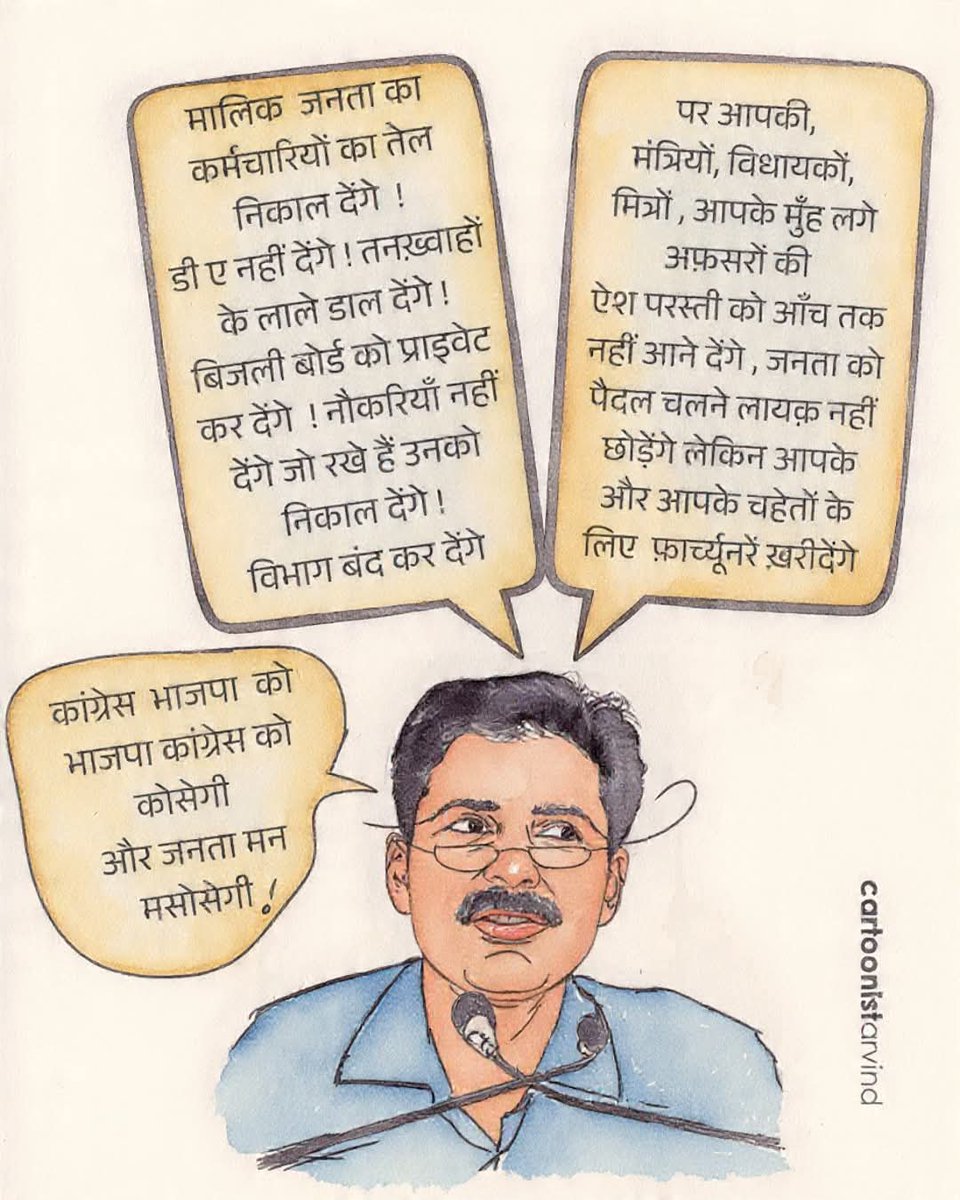 मालिक जनता का
कर्मचारियों का तेल
निकाल देंगे !
डी ए नहीं देंगे ! तनख़्वाहों
के लाले डाल देंगे !
बिजली बोर्ड को प्राइवेट
कर देंगे ! नौकरियाँ नहीं
देंगे जो रखे हैं उनको
निकाल देंगे !
विभाग बंद कर देंगे
पर आपकी,
मंत्रियों, विधायकों,
मित्रों , आपके मुँह लगे
अफ़सरों की
ऐश परस्ती को आँच तक
नहीं आने देंगे , जनता को
पैदल चलने लायक़ नहीं
छोड़ेंगे लेकिन आपके
और आपके चहेतों के
लिए फ़ार्च्यूनरें ख़रीदेंगे
कांग्रेस भाजपा को
भाजपा कांग्रेस को
कोसेगी
और जनता मन
मसोसेगी !
cartoonistarvind